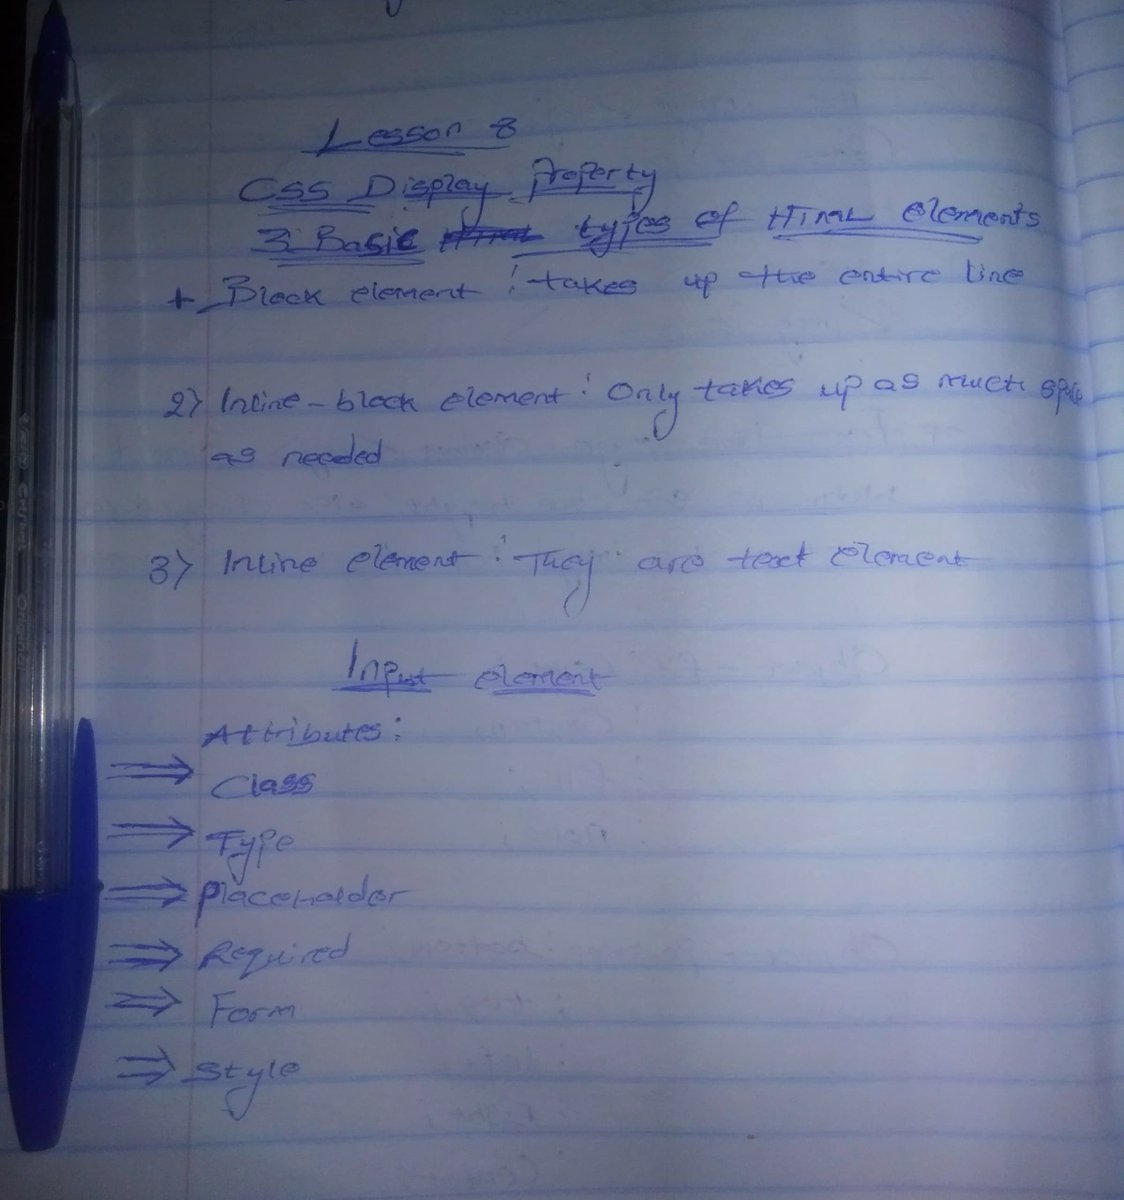 Lesson 8
CSS Display Property
3 Basic types of HTML elements
+ Block element : takes up the entire line
2) Inline-block element : Only takes up as much space
as needed
3) Inline element : They are text element
Input element
Attributes:
⇒ Class
⇒ Type
⇒ Placeholder
⇒ Required
⇒ Form
⇒ Style